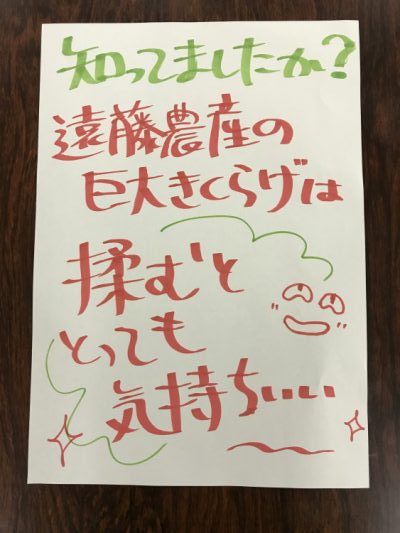 知ってましたか?
遠藤農産の
巨大きくらげは
揉むと
とっても
気持ちいい